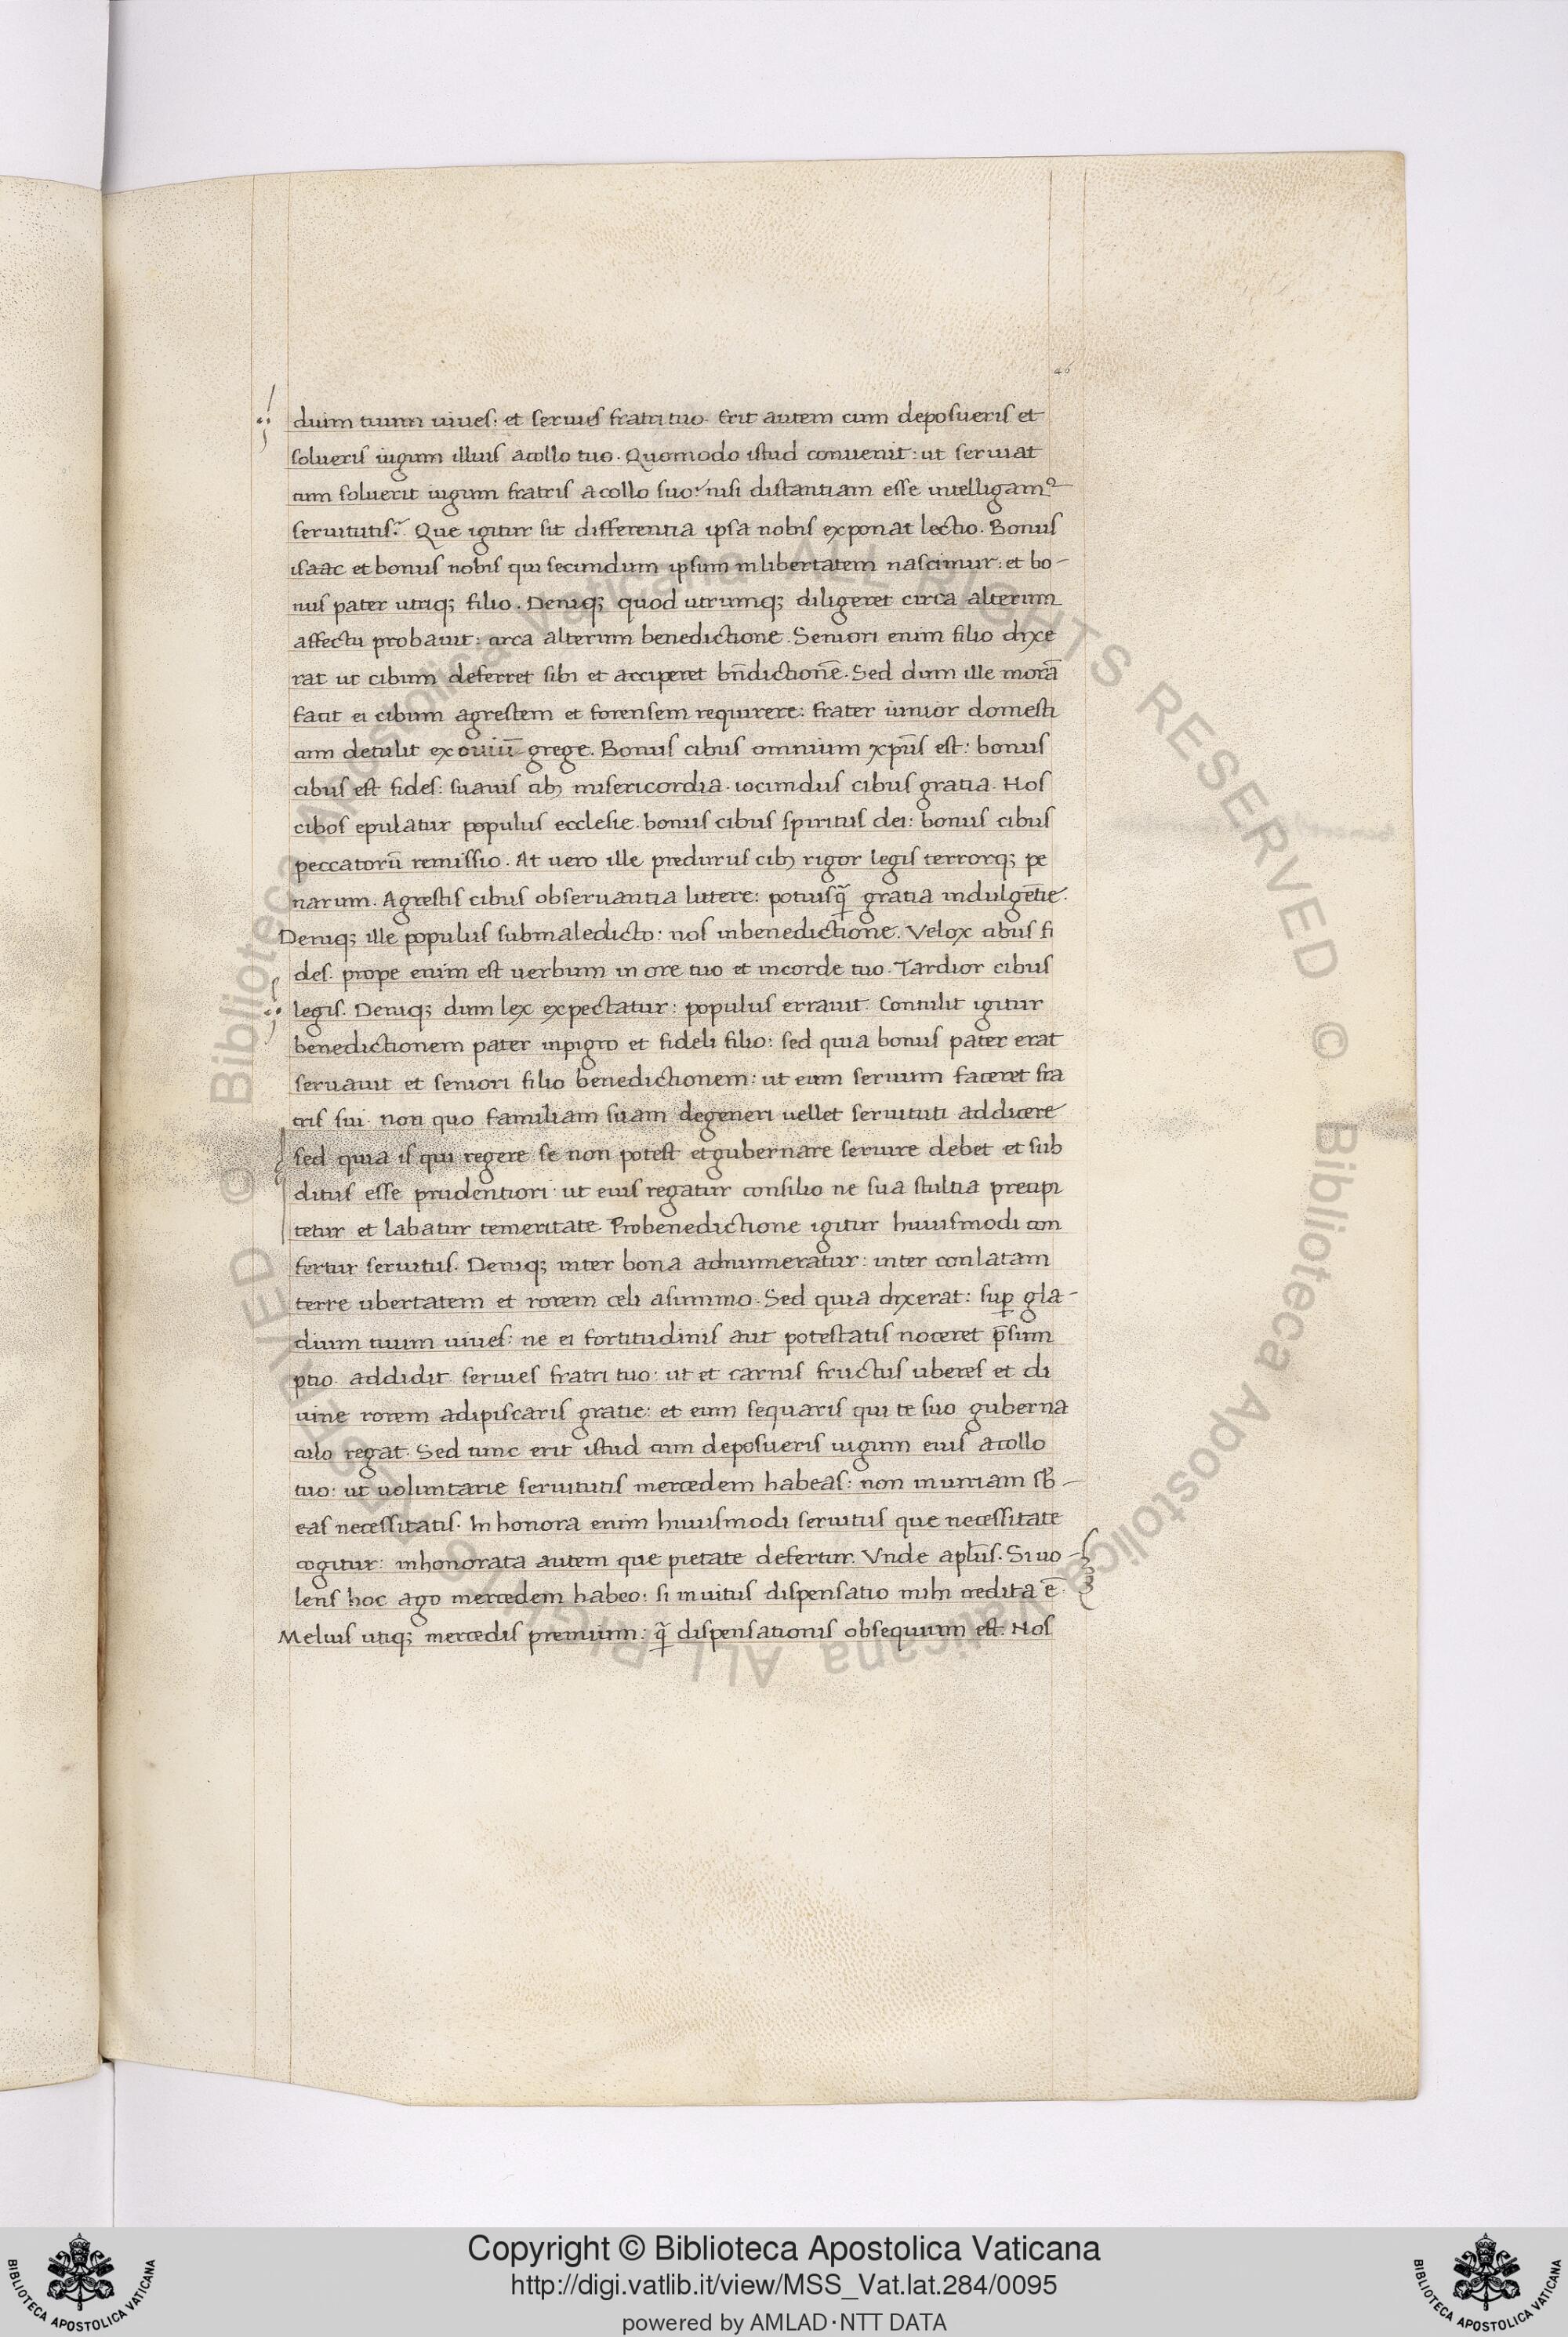 46
duim tuum uiues: et seruies fratri tuo. Erit autem cum deposueris et
solueris iugum illius acollo tuo. Quomodo istud conuenit: ut seruiat
cum soluerit iugum fratris acollo suo: nisi distantiam esse intelligamꝰ
seruitutis? Que igitur sit differentia ipsa nobis exponat lectio. Bonus
isaac et bonus nobis qui secundum ipsum inlibertatem nascimur: et bo-
nus pater utriq; filio. Deniq; quod utrumq; diligeret circa alterum
affectu probauit: circa alterum benedictione. Seniori enim filio dixe
rat ut cibum deferret sibi et acciperet bn̄dictionē. Sed dum ille morā
facit ei cibum agrestem et forensem requirere: frater iunior domesti
cum detulit ex ouiū grege. Bonus cibus omnium xp̄us est: bonus
cibus est fides: suauis cibꝫ misericordia. iocundus cibus gratia. Hos
cibos epulatur populus ecclesie. bonus cibus spiritus dei: bonus cibus
peccatorū remissio. At uero ille predurus cibꝫ rigor legis terrorq; pe
narum. Agrestis cibus obseruantia luttere: potiusq̃ gratia indulgētie.
Deniq; ille populus submaledicto: nos inbenedictione. Velox cibus fi
des. prope enim est uerbum in ore tuo et incorde tuo. Tardior cibus
legis. Deniq; dum lex expectatur: populus errauit. Contulit igitur
benedictionem pater inpigro et fideli filio: sed quia bonus pater erat
seruauit et seniori filio benedictionem: ut eum seruum faceret fra
tris sui. non quo familiam suam degeneri uellet seruituti addicere
sed quia is qui regere se non potest et gubernare seruire debet et sub
ditus esse prudentiori: ut eius regatur consilio ne sua stultia precipi
tetur et labatur temeritate. Probenedictione igitur huiusmodi con
fertur seruitus. Deniq; inter bona adnumeratur: inter conlatam
terre ubertatem et rorem celi asummo. Sed quia dixerat: sup̱ gla-
dium tuum uiues: ne ei fortitudinis aut potestatis noceret p̄sum
ptio. addidit. seruies fratri tuo: ut et carnis fructus uberes et di
uine rorem adipiscaris gratie: et eum sequaris qui te suo guberna
culo regat. Sed tunc erit istud cum deposueris iugum eius acollo
tuo: ut uoluntarie seruitutis mercedem habeas: non iniuriam sb̄-
eas necessitatis. Inhonora enim huiusmodi seruitus que necessitate
cogitur: inhonorata autem que pietate defertur. Vnde apl̄us. Si uo-
lens hoc ago mercedem habeo: si inuitus dispensatio mihi credita ē.
Melius utiq; mercedis premium: q̃ dispensationis obsequium est. Hos
© Biblioteca Apostolica Vaticana ALL RIGHTS RESERVED
Copyright © Biblioteca Apostolica Vaticana
http://digi.vatlib.it/view/MSS_Vat.lat.284/0095
powered by AMLAD·NTT DATA
BIBLIOTECA APOSTOLICA VATICANA
BIBLIOTECA APOSTOLICA VATICANA